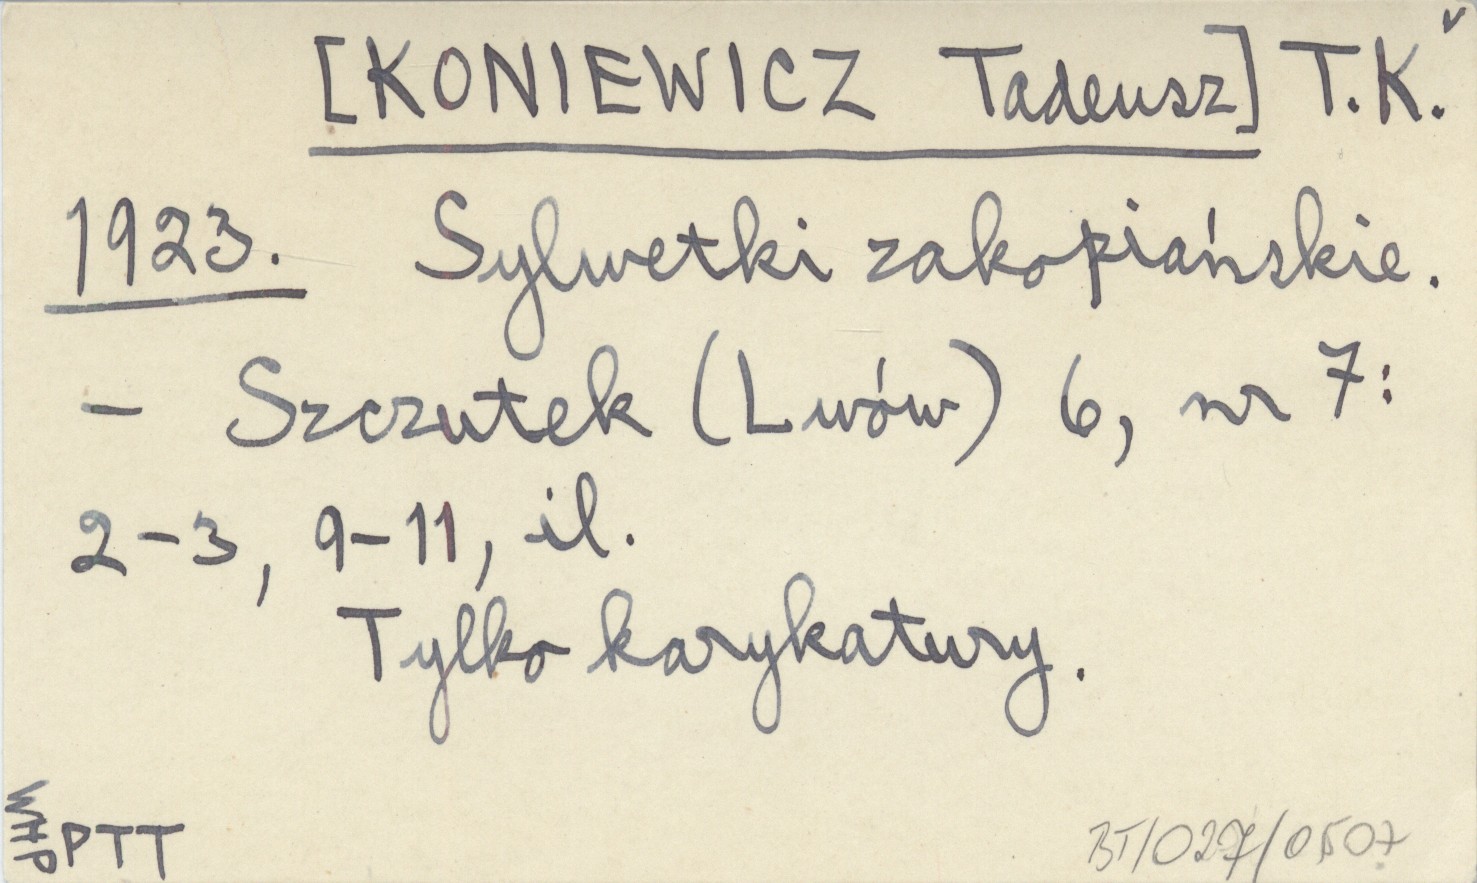 [KONIEWICZ Tadeusz] T.K.
1923. Sylwetki zakopiańskie.
– Szczutek (Lwów) 6, nr 7:
2–3, 9–11, il.
Tylko karykatury.
WHP
PTT
BT/027/0507